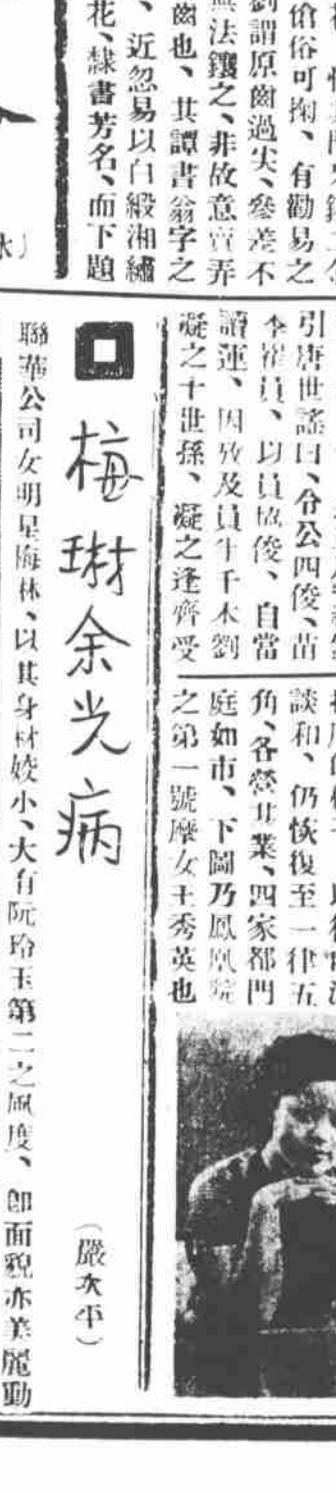 傖俗可掬、有勸易之
劉謂原齒過尖、參差不
無法鑲之、非故意賣弄
齒也、其譚書翁字之
、近忽易以白緞湘繡
花、隸書芳名、而下題
引唐世謠曰、令公四俊、苗
李崔員、以員協俊、自當
讀運、因攷及員半千本劉
凝之十世孫、凝之逢齊受
談和、仍恢復至一律五
角、各營其業、四家都門
庭如市、下圖乃鳳凰院
之第一號摩女王秀英也
梅琳余光病
（嚴次平）
聯華公司女明星梅林、以其身材姣小、大有阮玲玉第二之風度、卽面貌亦美麗動